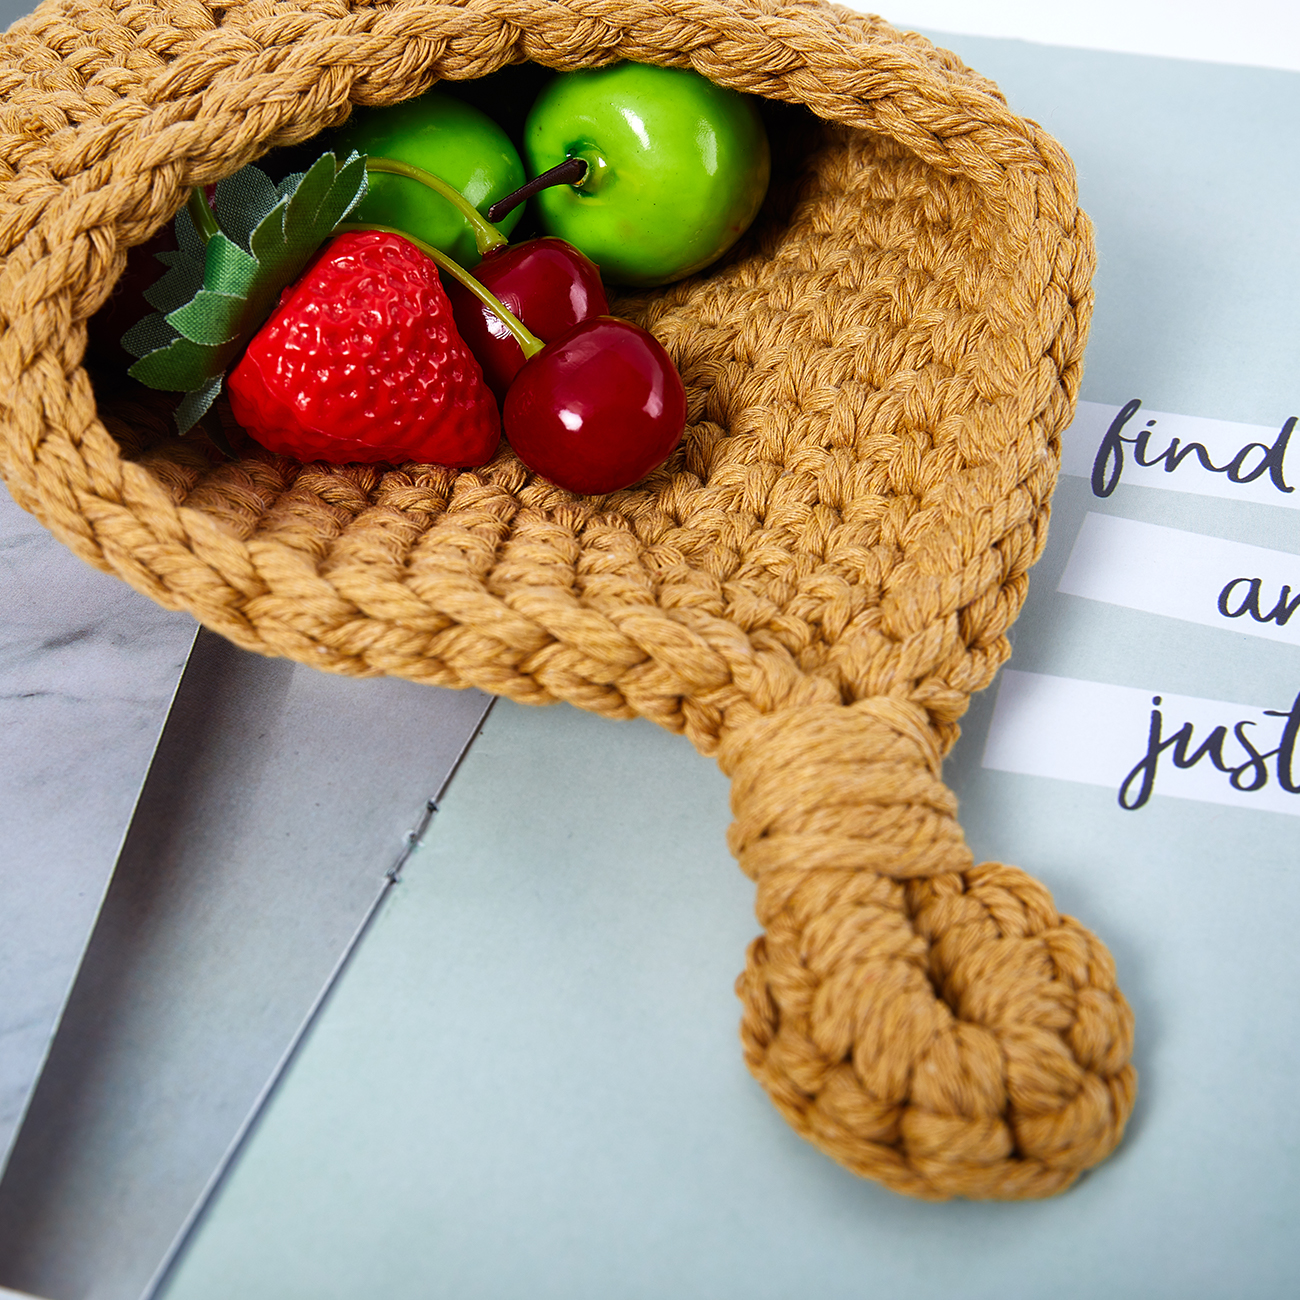 find
just